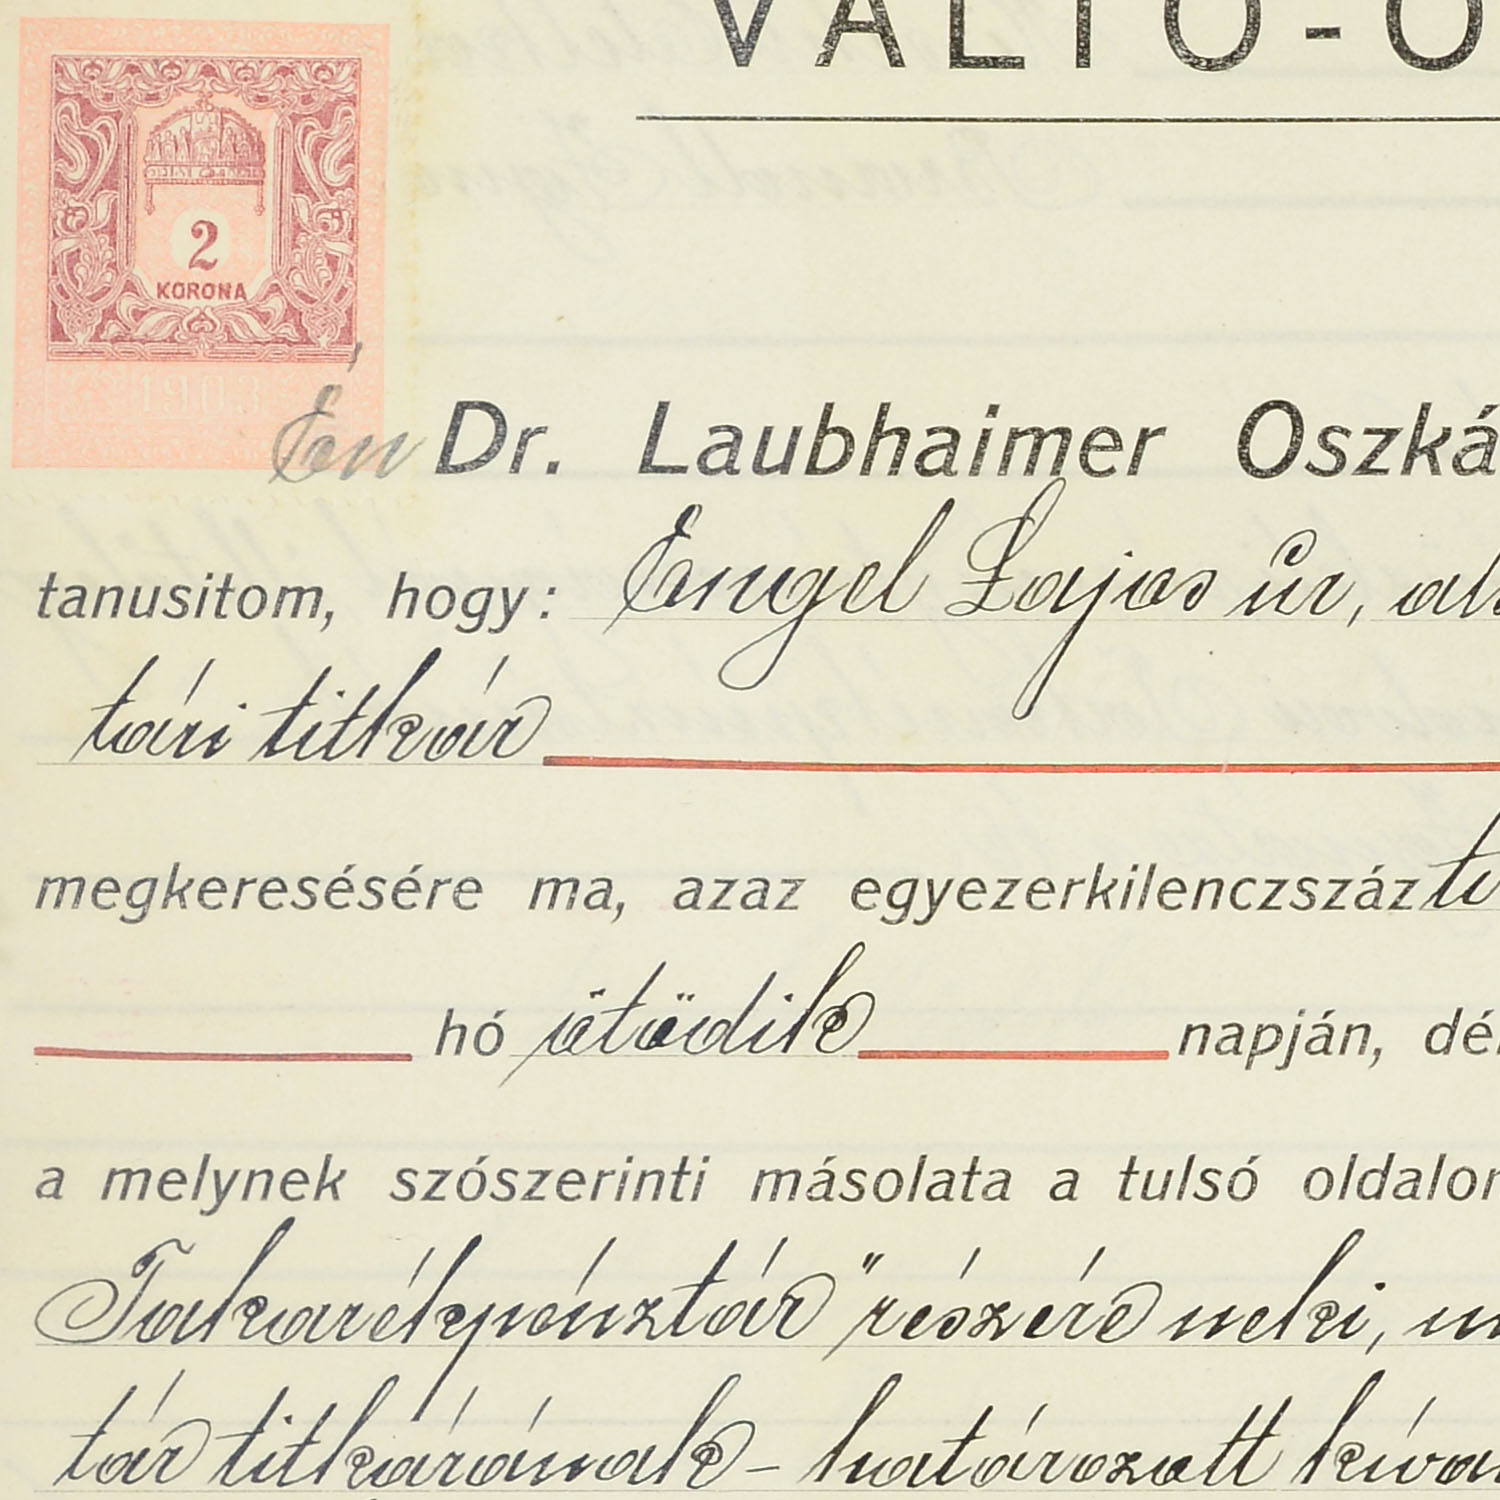 VÁLTÓ-Ó
2
KORONA
1903
Én Dr. Laubhaimer Oszká
tanusitom, hogy: Engel Lajos úr,
tári titkár
megkeresésére ma, azaz egyezerkilenczszáz
hó ötödik napján,
a melynek szószerinti másolata a tulsó oldalon
Takarékpénztár" részére neki,
tár titkárának – határozott